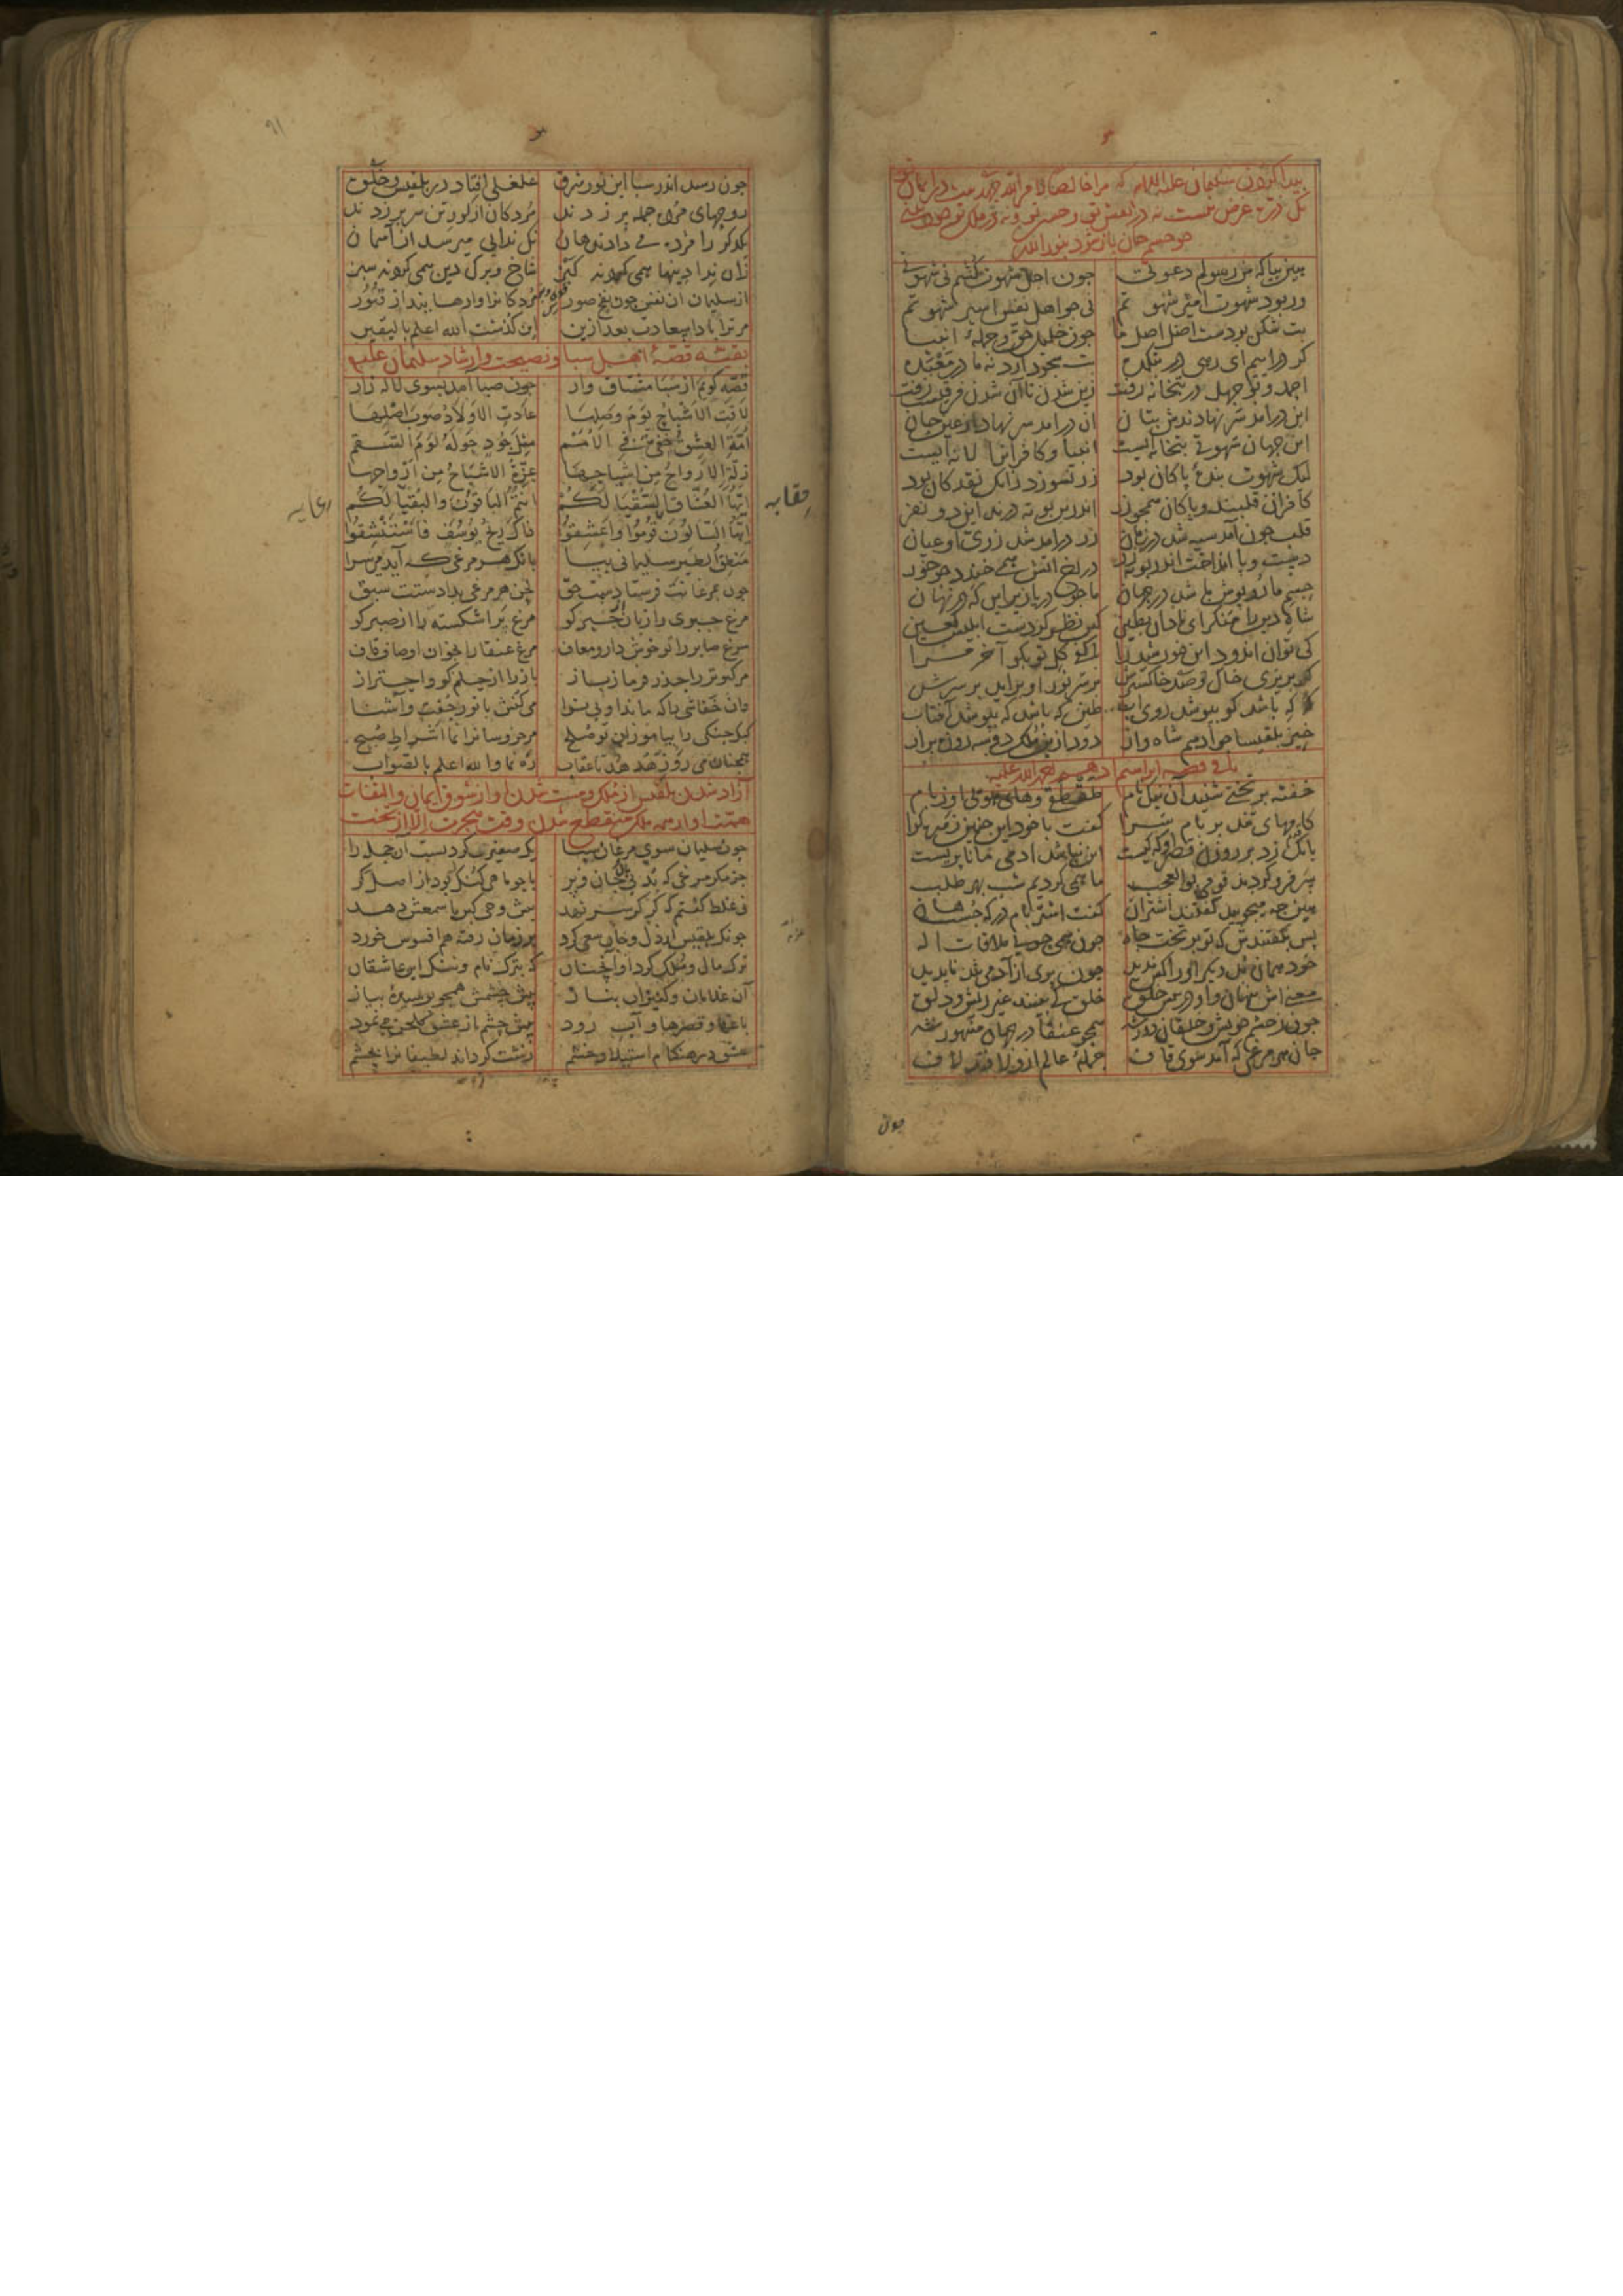 پیدا کردن سلیمان علیه السلام که مرا خالصا لامر الله جهدست در ایمان تو
یک ذره غرض نیست نه در نفس تو و حسن تو و نه در ملک تو خود بینی
چو چشم جان باز شود بنور الله
هین بیا که من رسولم دعوتی جون اجل شهوت کشم نی شهوتی
ور بود شهوت امیر شهوتم نی جو اهل نفس اسیر شهوتم
بت شکن بودست اصل اصل ما جون خلیل حق و جمله انبیا
کر در آییم ای رهی در بتکده بت سجود آرد نه ما در معبده
احمد و بوجهل در بتخانه رفت زین شدن تا آن شدن فرقیست زفت
این در آمد سر نهادندش بتان آن در آمد سر نهاد او عین جان
این جهان شهوتی بتخانه ایست انبیا و کافرانرا لانه ایست
لیک شهوت بندهٔ پاکان بود زر نسوزد زانک نقد کان بود
کافران قلبند و پاکان همجو زر اندرین بوته درند این دو نفر
قلب جون آمد سیه شد در زمان زر در آمد شد زری او عیان
دست و پا انداخت اندر بوته زر در رخ آتش همی خندد جو خور
جسم ما روپوش ما شد در جهان ما جو دریا زیر این که در نهان
شاه دین را منکر ای نادان بطین کین نظر کردست ابلیس لعین
کی توان اندود این خورشید را با کف کل تو بکو آخر مرا
کر بریزی خاک و صد خاکسترش بر سر نور او برآید بر سرش
که که باشد کو بپوشد روی آب طین که باشد که بپوشد آفتاب
خیز بلقیسا جو ادهم شاه وار دود ازین ملک دو سه روزه برآر
باقی قصه ابراهیم ادهم رحمة الله علیه
خفته بر تختی شنید آن نیک نام طقطق و های هویی او ز بام
کامهای تند بر بام سرا کفت با خود این جنین زهره کرا
بانک زد بر روزن قصر او که کیست این نباشد آدمی مانا پریست
سر فرو کردند قومی بو العجب ما همی کردیم شب بهر طلب
هین جه میجویید کفتند اشتران کفت اشتر بام بر که جست هان
پس بکفتندش که تو بر تخت جاه جون همی جویی ملاقات اله
خود همان بد دیکر او را کس ندید جون پری از آدمی شد ناپدید
معنی اش پنهان و او در پیش خلق خلق کی بینند غیر ریش و دلق
جون ز جشم خویش و خلقان دور شد همجو عنقا در جهان مشهور شد
جان هر مرغی که آمد سوی قاف جملهٔ عالم ازو لافند لاف
جون
جون رسید اندر سبا این نور شرق غلغلی افتاد در بلقیس و خلق
روحهای مرده جمله بر زدند مردکان از کور تن سر بر زدند
یکدکر را مژده می دادند هان نک ندایی میرسد از آسمان
زان ندا دینها همی کردند کبز شاخ و برک دین همی کردند سبز
از سلیمان آن نفس جون نفخ صور مردکانرا وا رهانید از قبور
مر ترا بادا سعادت بعد ازین این کذشت الله اعلم بالیقین
بقیهٔ قصهٔ اهل سبا و نصیحت و ارشاد سلیمان علیه
قصه کویم از سبا مشتاق وار جون صبا آمد بسوی لاله زار
لاقت الاشباح یوم وصلها عادت الاولاد صوب اصلها
امة العشق خفی فی الامم مثل جود حوله لوم السقم
ذلة الارواح من اشباحها عزة الاشباح من ارواحها
ایها العشاق السقیا لکم انتم الباقون والبقیا لکم
ایها السالون قوموا واعشقوا ذاک ریح یوسف فاستنشقوا
منطق الطیر سلیمانی بیا بانک هر مرغی که آید می سرا
جون بمرغانت فرستادست حق لحن هر مرغی بدادستت سبق
مرغ جبری را زبان جبر کو مرغ پر اشکسته را از صبر کو
مرغ صابر را تو خوش دار و معاف مرغ عنقا را بخوان اوصاف قاف
مر کبوتر را حذر فرما ز باز باز را از حلم کو و احتراز
وان خفاشی را که ماند او بی نوا می کنش با نور جفت و آشنا
کبک جنکی را بیاموزان تو صلح مر خروسانرا نما اشراط صبح
همجنان می رو ز هدهد تا عقاب ره نما والله اعلم بالصواب
آزاد شدن بلقیس از ملک و مست شدن او از شوق ایمان و التفات
همت او از همه ملک منقطع شدن وقت هجرت الا از تخت
جون سلیمان سوی مرغان سبا یک صفیری کرد بست آن جمله را
جز مکر مرغی که بد بی جان و پر یا جو ماهی کنک بود از اصل کر
نی غلط کفتم که کر کر سر نهد پیش وحی کبریا سمعش دهد
جونک بلقیس از دل و جان سعی کرد بر زمان رفته هم افسوس خورد
ترک مال و ملک کرد او آنجنان که بترک نام و ننک این عاشقان
آن غلامان و کنیزان بناز پیش جشمش همجو پوسیده پیاز
باغها و قصرها و آب رود پیش جشم از عشق کلخن می نمود
عشق در هنکام استیلا و خشم زشت کرداند لطیفانرا بجشم